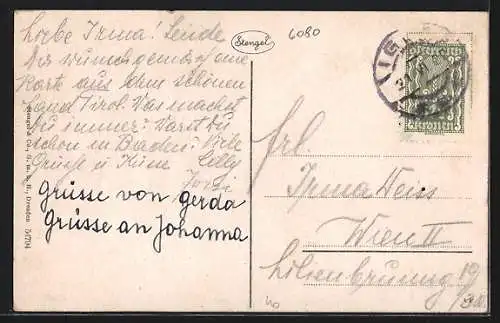 Liebe Irma! Sende
dir wunschgemäss eine
Karte aus dem schönen
Land Tirol. Was machst
Du immer? Warst Du
schon in Baden? Viele
Grüsse u. Küsse
Grüsse von gerda
Grüsse an Johanna
Stengel
6080
Stengel & Co., G. m. b. H., Dresden 51794
frl.
Irma Weiss
Wien II